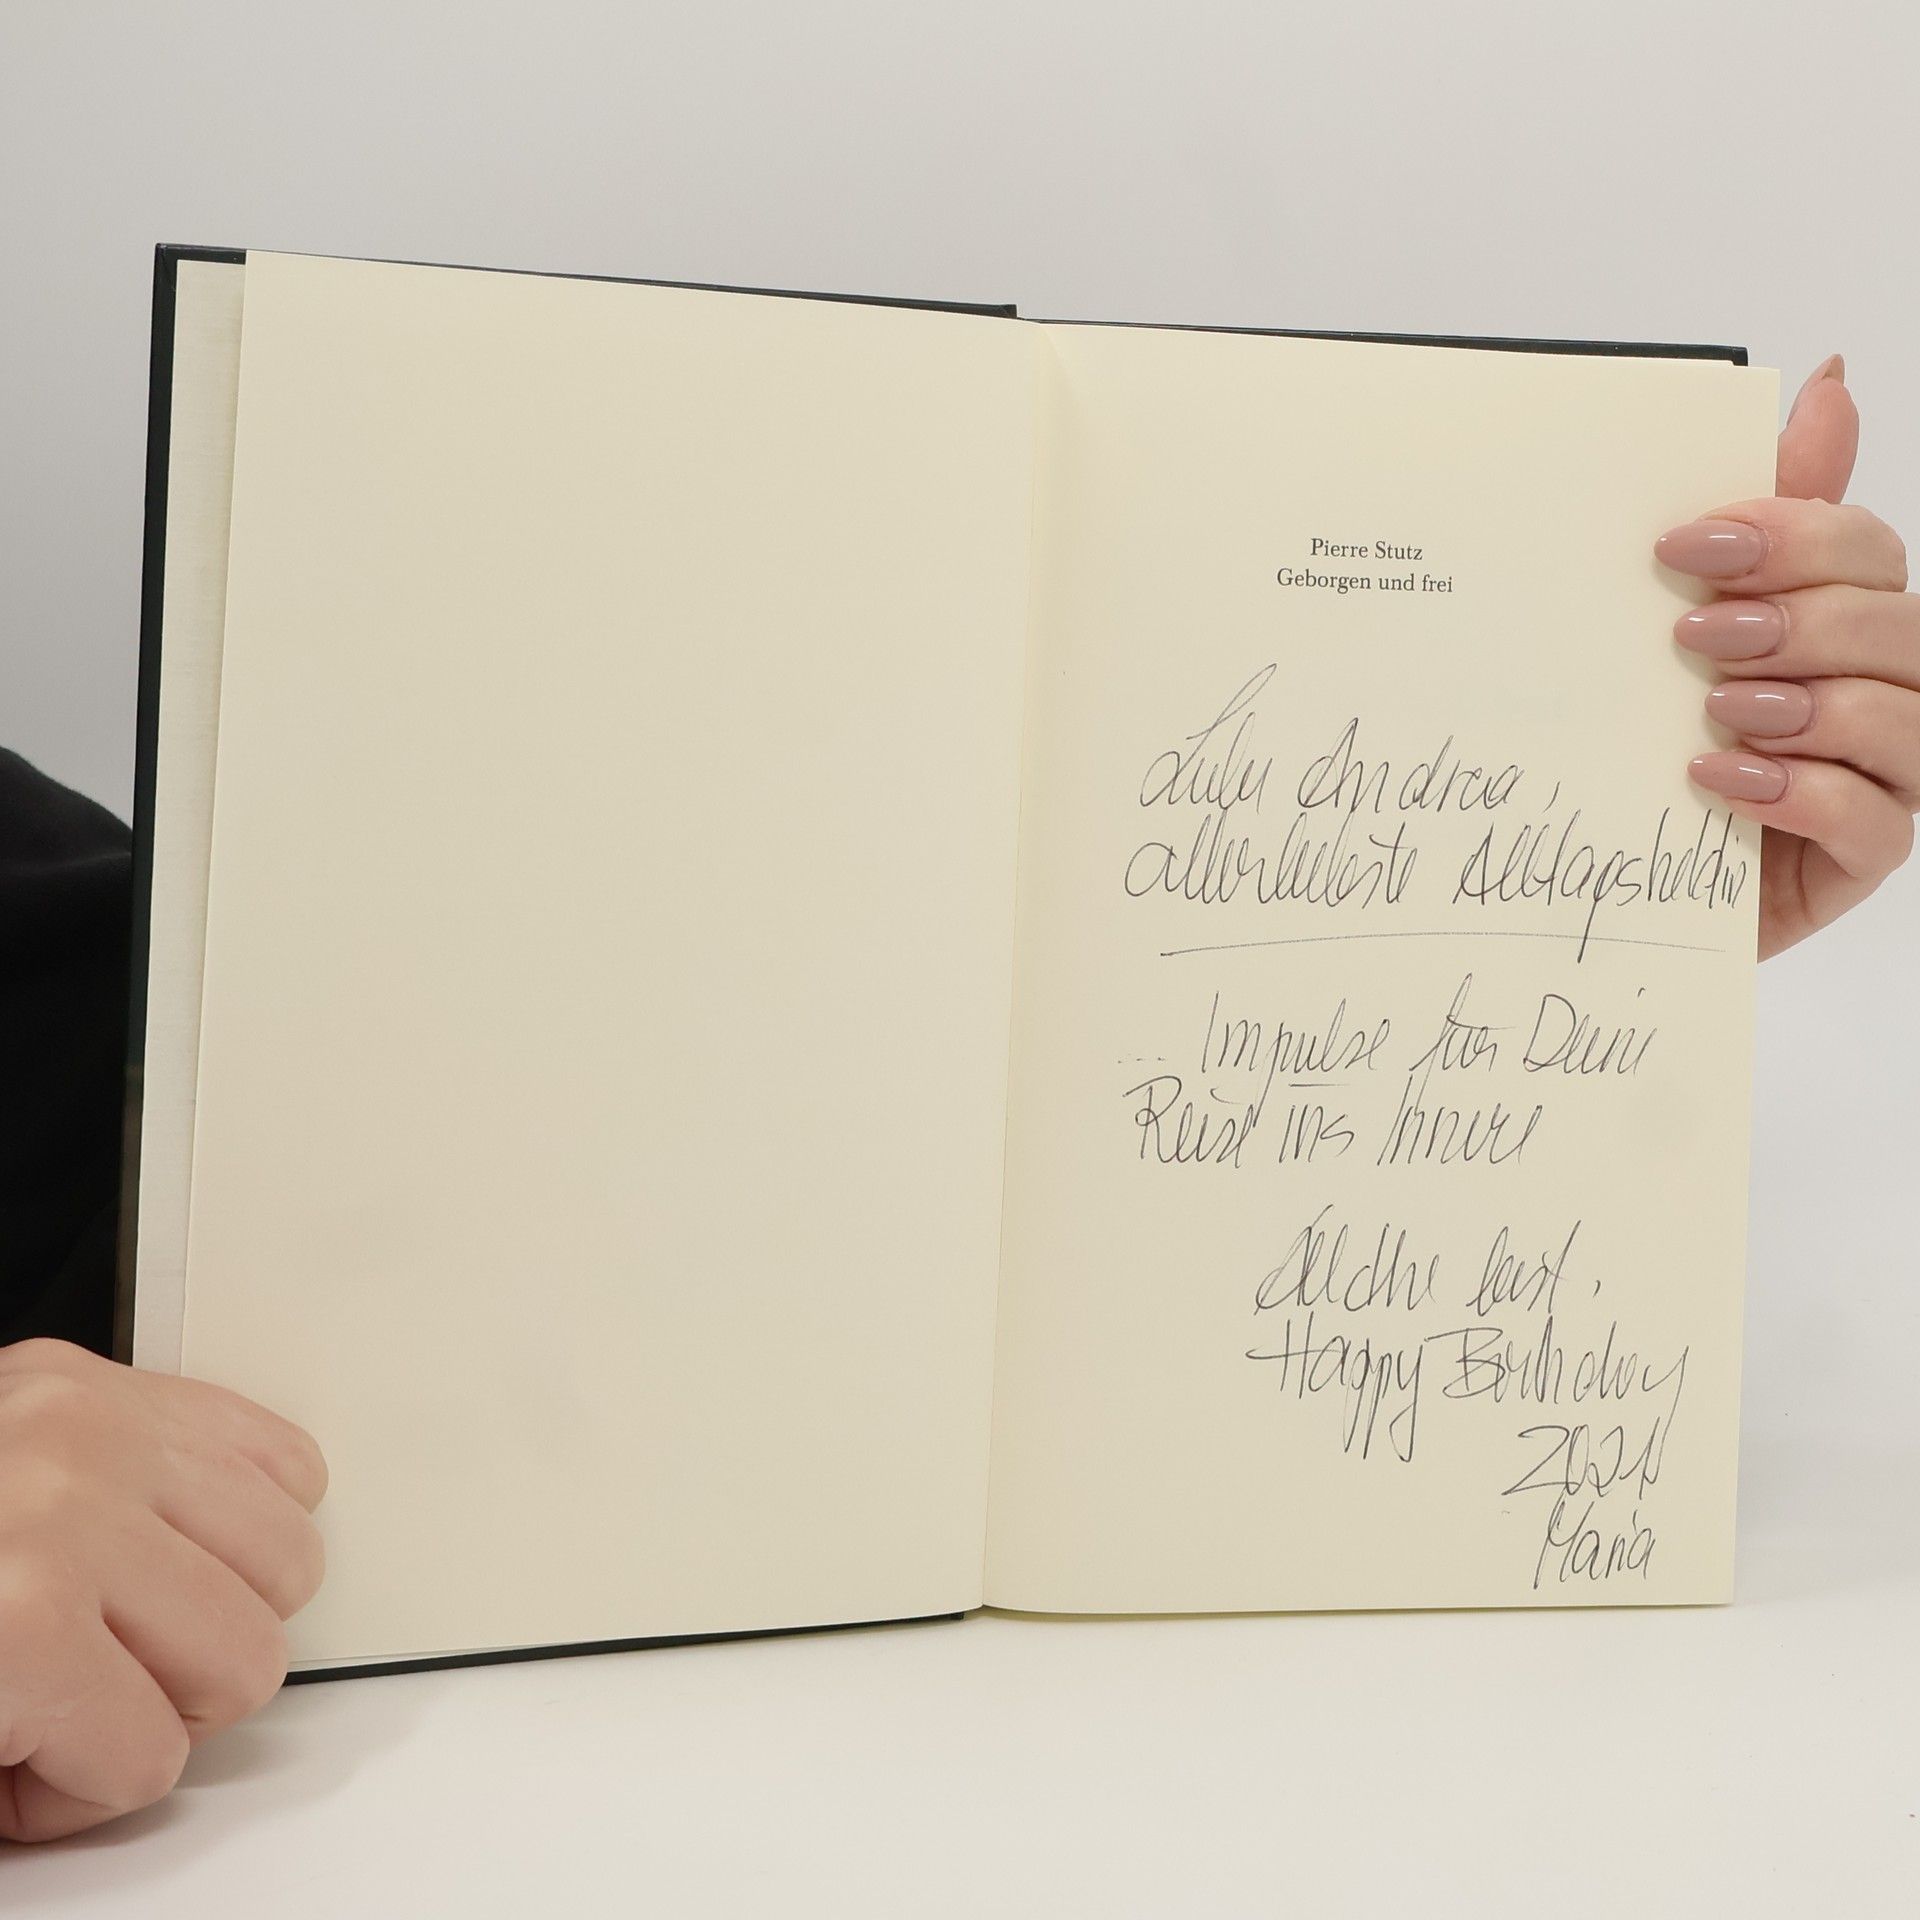 Pierre Stutz
Geborgen und frei
Andrea,
allerliebste Alltagsheldin
... Impulse für Deine
Reise ins Innere
Happy Birthday
2021
Maria